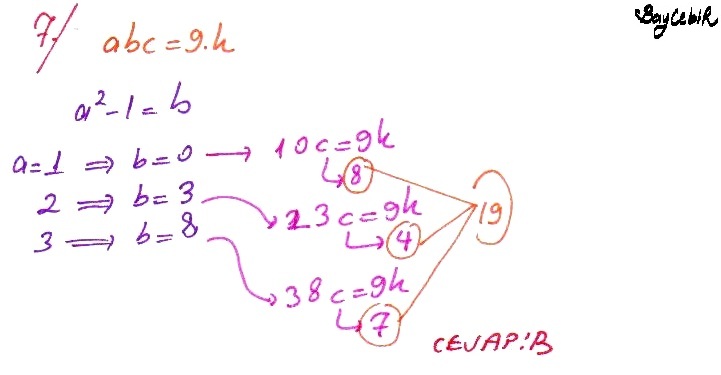 BayCebiR
7/ abc = 9.k
a²-1 = b
a=1 ⇒ b=0 → 10c=9k
8
2 ⇒ b=3 → 23c=9k
4
19
3 ⇒ b=8 → 38c=9k
7
CEVAP:B